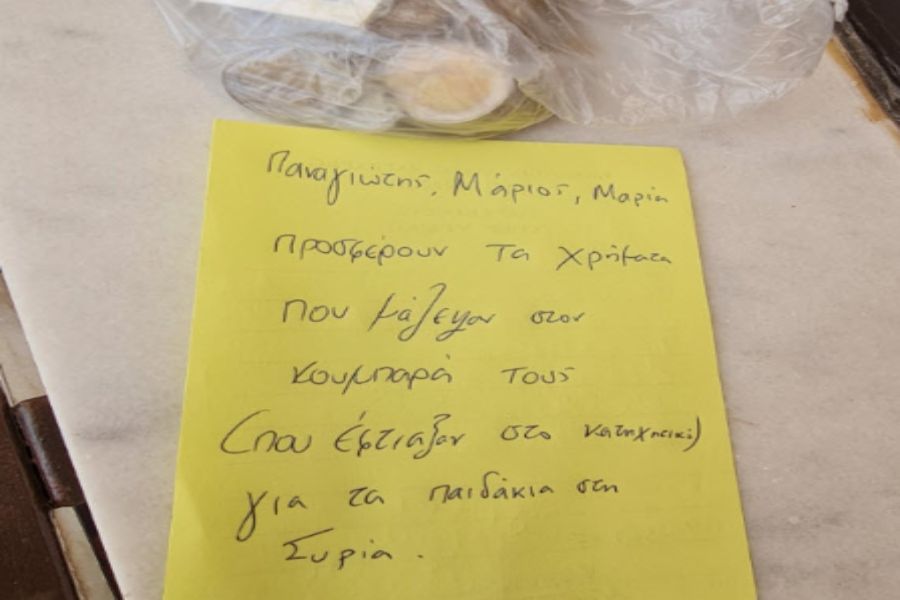 Παναγιώτης, Μάριος, Μαρία
προσφέρουν τα χρήματα
που μάζεψαν στον
κουμπαρά τους
(που έφτιαξαν στο κατηχητικό)
για τα παιδάκια στη
Συρία.